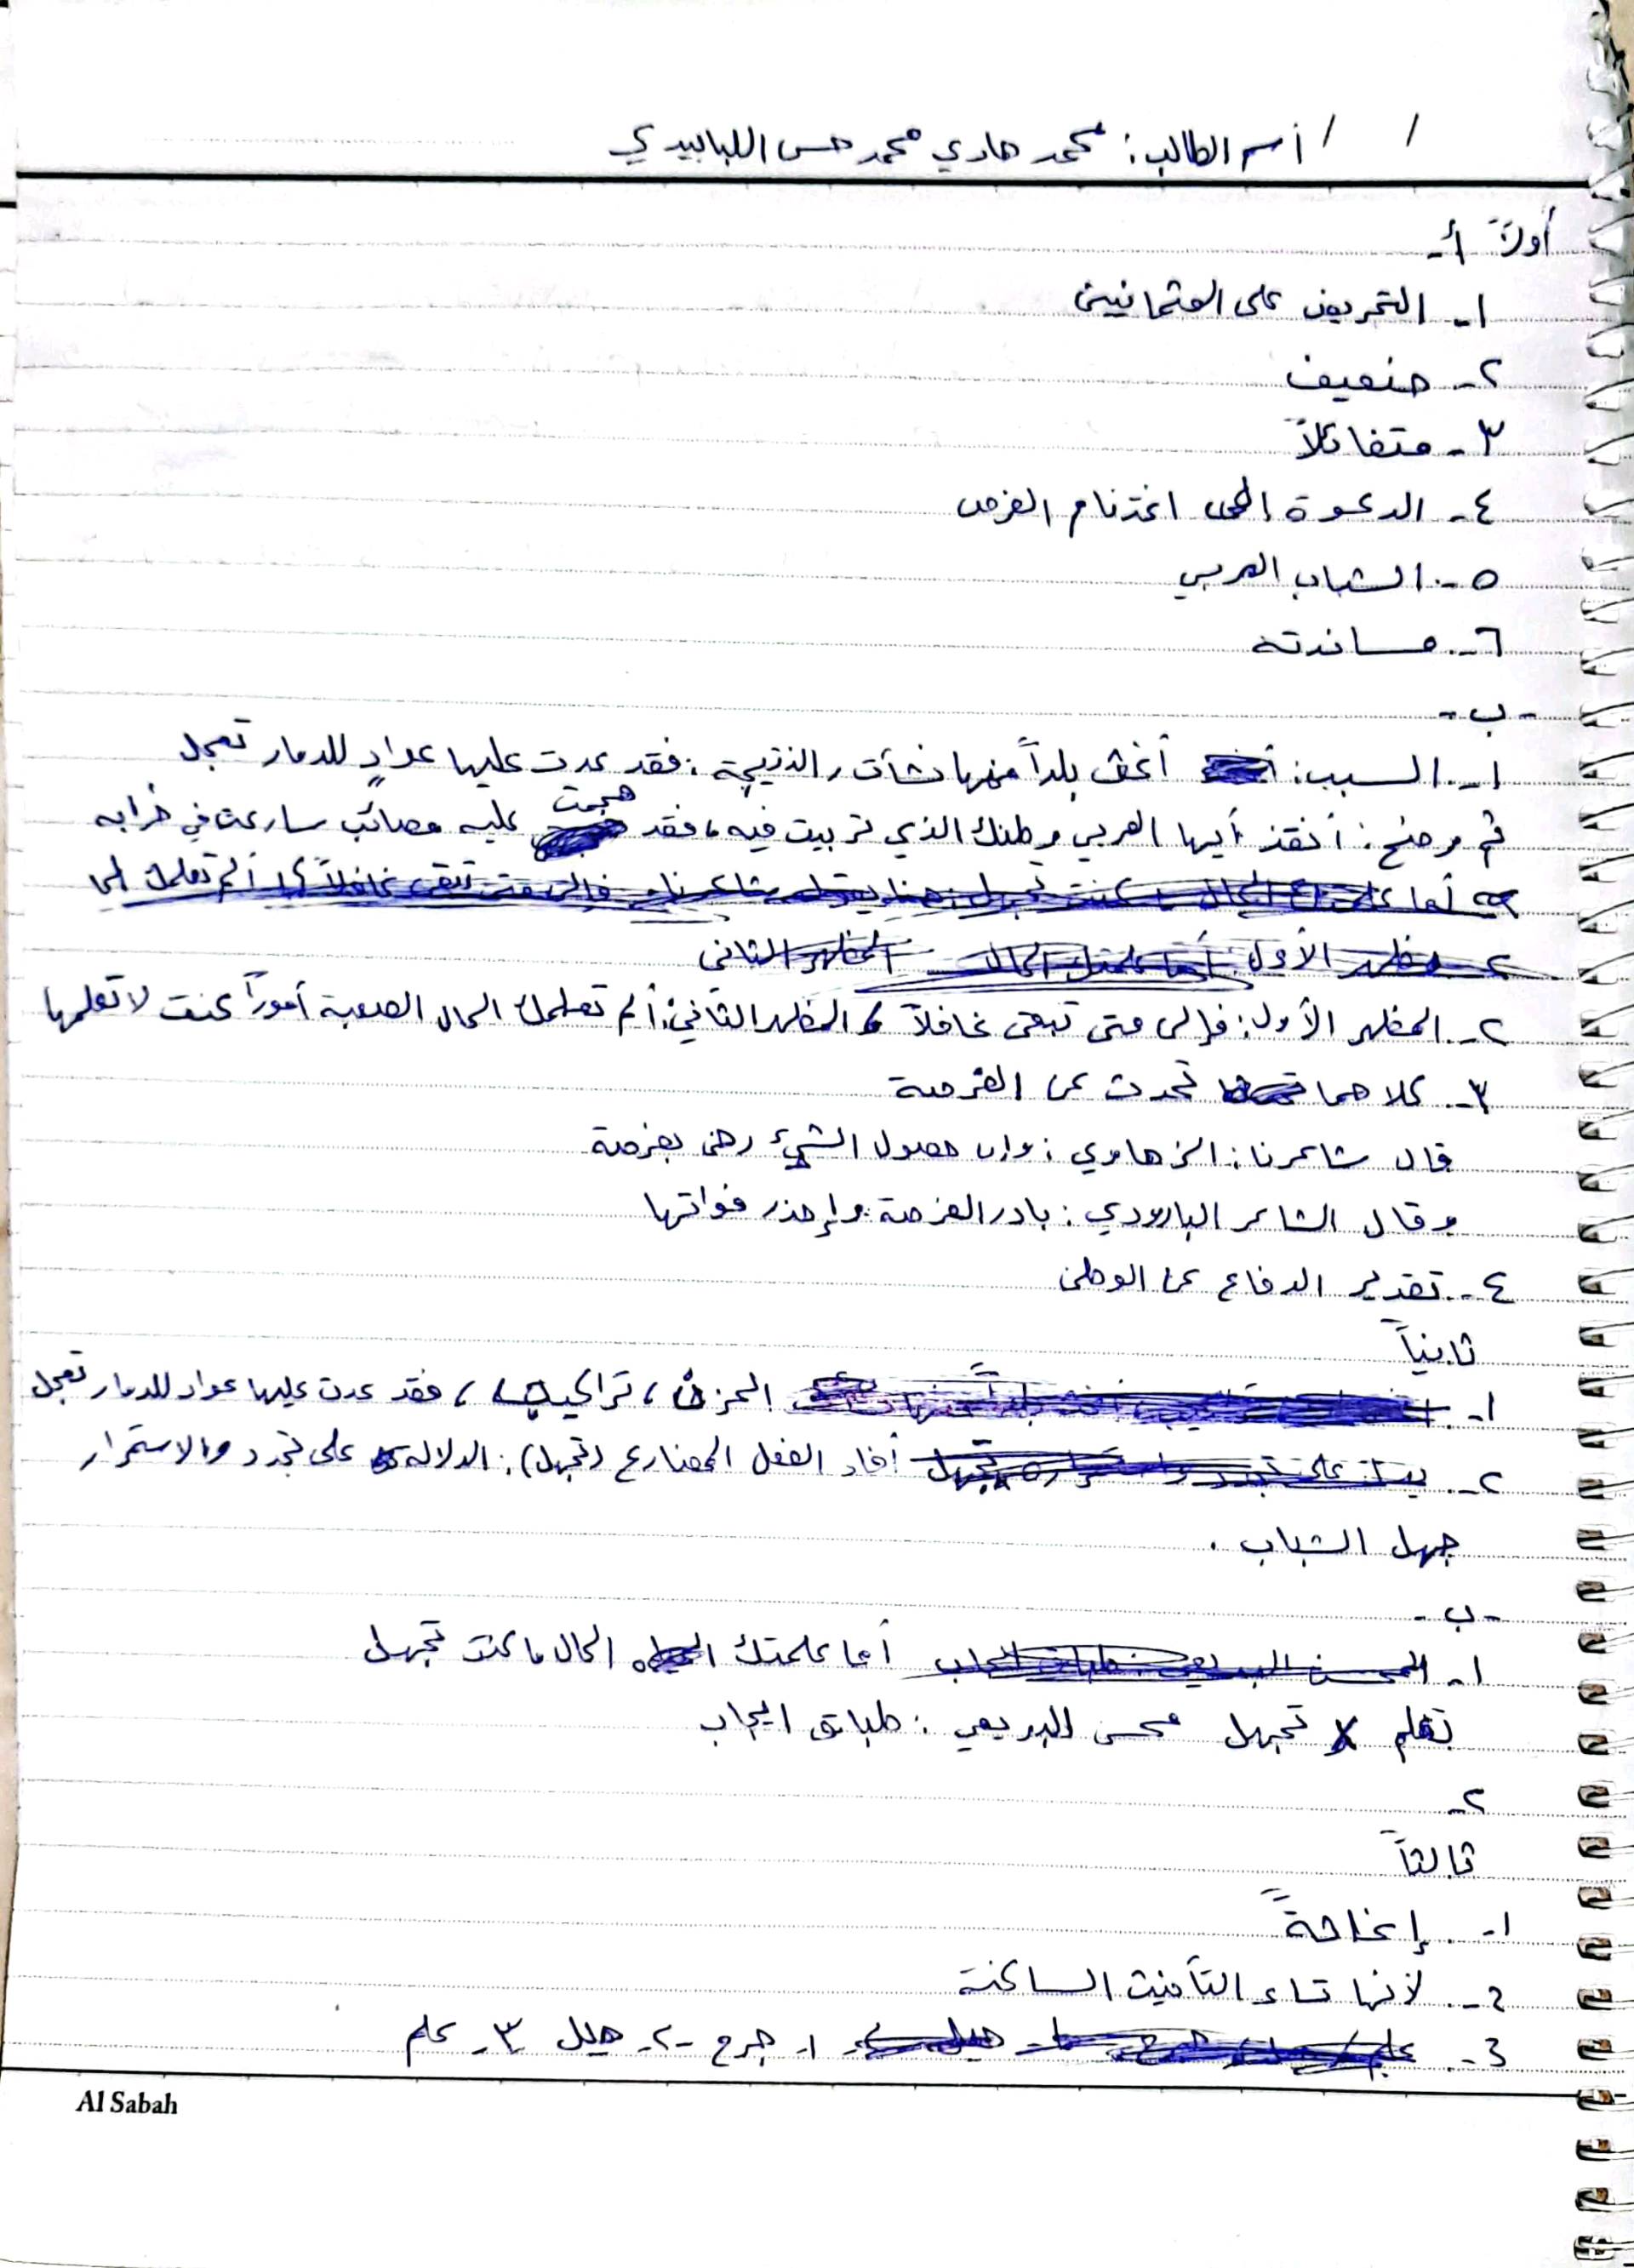 / / أسم الطالب: محمد هادي محمد حسن اللبابيدي
أولاً أ-
١- التحريض على العثمانيين
٢- ضعيف
٣- متفائلاً
٤- الدعوة إلى اغتنام الفرص
٥- الشباب العربي
٦- مساندته
- ب -
١- السبب: أغث بلداً منها نشأت, النتيجة: فقد عدت عليها عوادٍ للدمار تعجل
ثم وضح: أنقذ أيها العربي وطنك الذي تربيت فيه، فقد هجمت عليه مصائب سارعت في خرابه
٢- مظهر الأول: المظهر الثاني
٢- المظهر الأول: فإلى متى تبقى غافلاً المظهر الثاني: ألم تعلمك الحال الصعبة أموراً كنت لا تعلمها
٣- كلاهما تحدث عن الفرصة
قال شاعرنا: الزهاوي: وإن حصول الشيء رهن بفرصة
وقال الشاعر البارودي: بادر الفرصة وإحذر فواتها
٤- تقدير الدفاع عن الوطن
ثانياً
١- الحزن، تراكيب، فقد عدت عليها عواد للدمار تعجل
٢- أفاد الفعل المضارع (تجهل): الدلالة على تجدد والاستمرار
جهل الشباب.
- ب -
١- أما علمتك الحال ما كنت تجهل
تعلم X تجهل محسن البديعي: طباق ايجاب
٢-
ثالثاً
١- إغاثةً
٢- لأنها تاء التأنيث الساكنة
3- ١- جرح ٢- هيل ٣- علم
Al Sabah